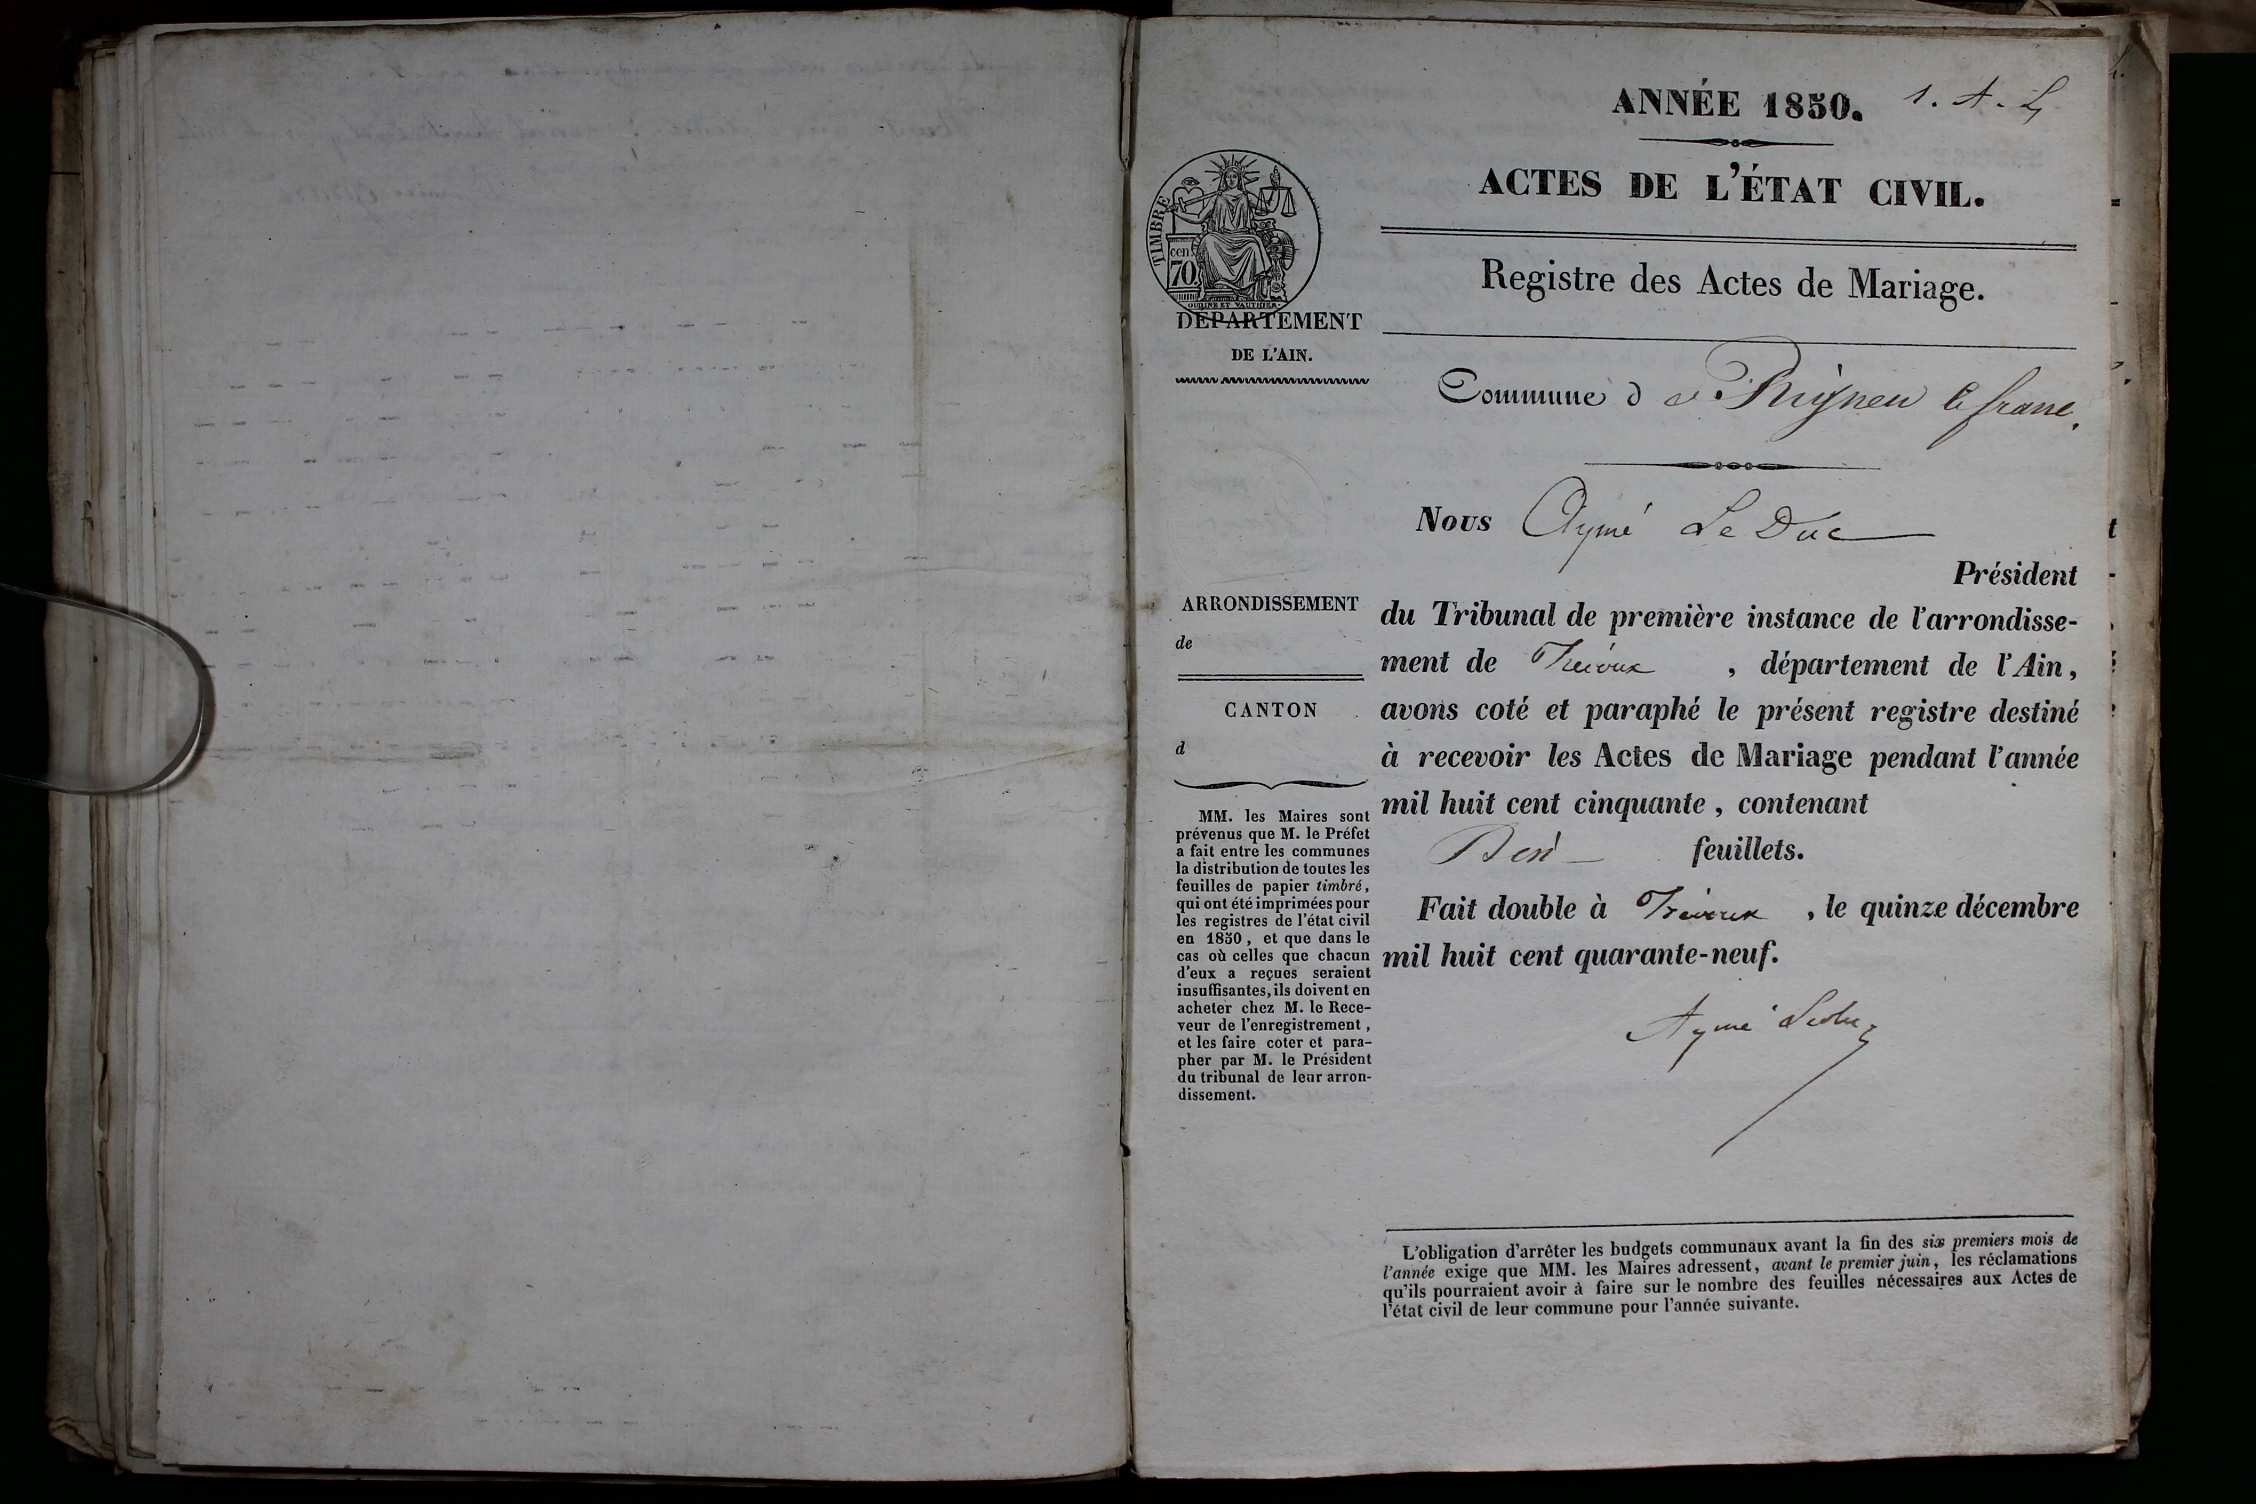 ANNÉE 1850. 1. A. L
ACTES DE L'ÉTAT CIVIL.
TIMBRE
cen.
70.
OUDINÉ ET VAUTHIER.
Registre des Actes de Mariage.
DÉPARTEMENT
DE L'AIN.
Commune de Rigneu le franc.
Nous Aymé Le Duc
Président
ARRONDISSEMENT
de
du Tribunal de première instance de l'arrondisse-
ment de Trévoux , département de l'Ain,
avons coté et paraphé le présent registre destiné
à recevoir les Actes de Mariage pendant l'année
mil huit cent cinquante , contenant
feuillets.
Fait double à Trévoux , le quinze décembre
mil huit cent quarante-neuf.
Aymé Leduc
CANTON
d
MM. les Maires sont
prévenus que M. le Préfet
a fait entre les communes
la distribution de toutes les
feuilles de papier timbré,
qui ont été imprimées pour
les registres de l'état civil
en 1850 , et que dans le
cas où celles que chacun
d'eux a reçues seraient
insuffisantes, ils doivent en
acheter chez M. le Rece-
veur de l'enregistrement ,
et les faire coter et para-
pher par M. le Président
du tribunal de leur arron-
dissement.
L'obligation d'arrêter les budgets communaux avant la fin des six premiers mois de
l'année exige que MM. les Maires adressent, avant le premier juin, les réclamations
qu'ils pourraient avoir à faire sur le nombre des feuilles nécessaires aux Actes de
l'état civil de leur commune pour l'année suivante.